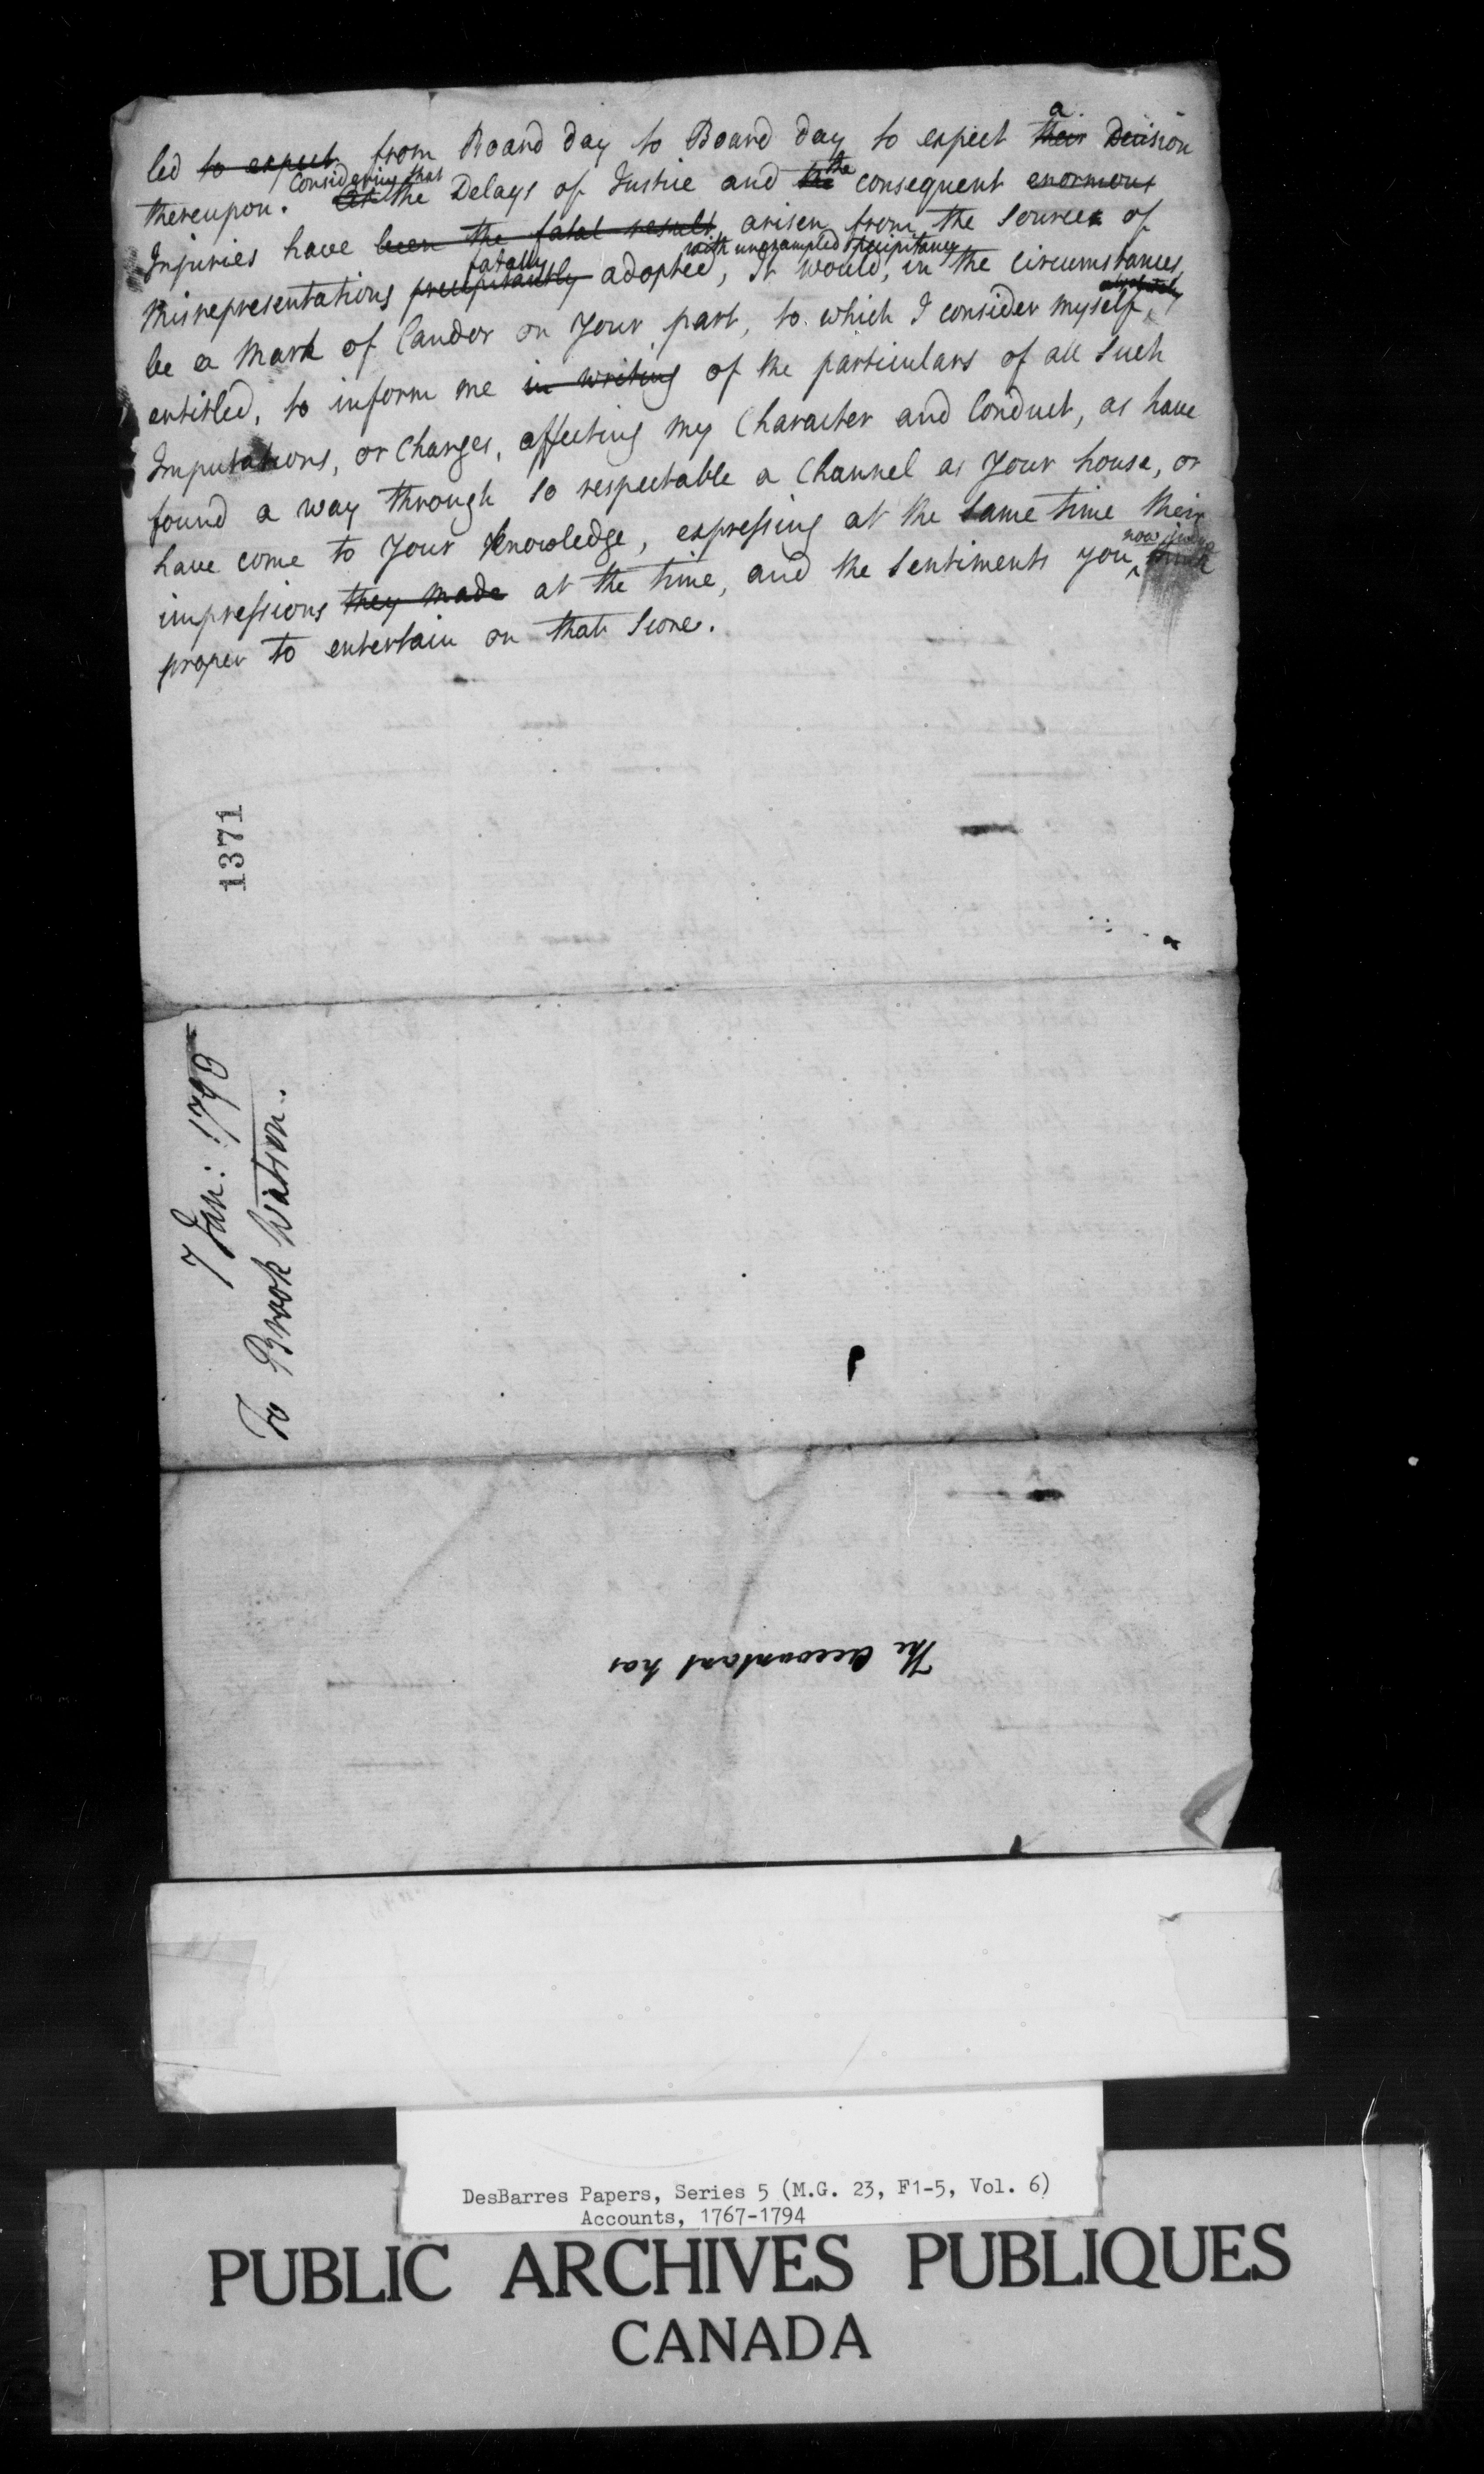 led to expect from Board day to Board day to expect their a Decision
thereupon. As Considering that the Delays of Justice and the the consequent enormous
Injuries have been the fatal result, arisen from the source of
Misrepresentations precipitantly fatally adopted, with unexampled precipitancy It would, in the circumstances,
be a Mark of Candor on Your part, to which I consider myself, absolutely
entitled, to inform me in writing of the particulars of all such
Imputations, or Charges, affecting my Character and Conduct, as have
found a way through so respectable a Channel as Your house, or
have come to Your Knowledge, expressing at the same time their
impressions they made at the time, and the Sentiments you now think
proper to entertain on that Score.
1371
7 Jan: 1793
To Brook Watson.
The Accountant has
DesBarres Papers, Series 5 (M.G. 23, F1-5, Vol. 6)
Accounts, 1767-1794
PUBLIC ARCHIVES PUBLIQUES
CANADA